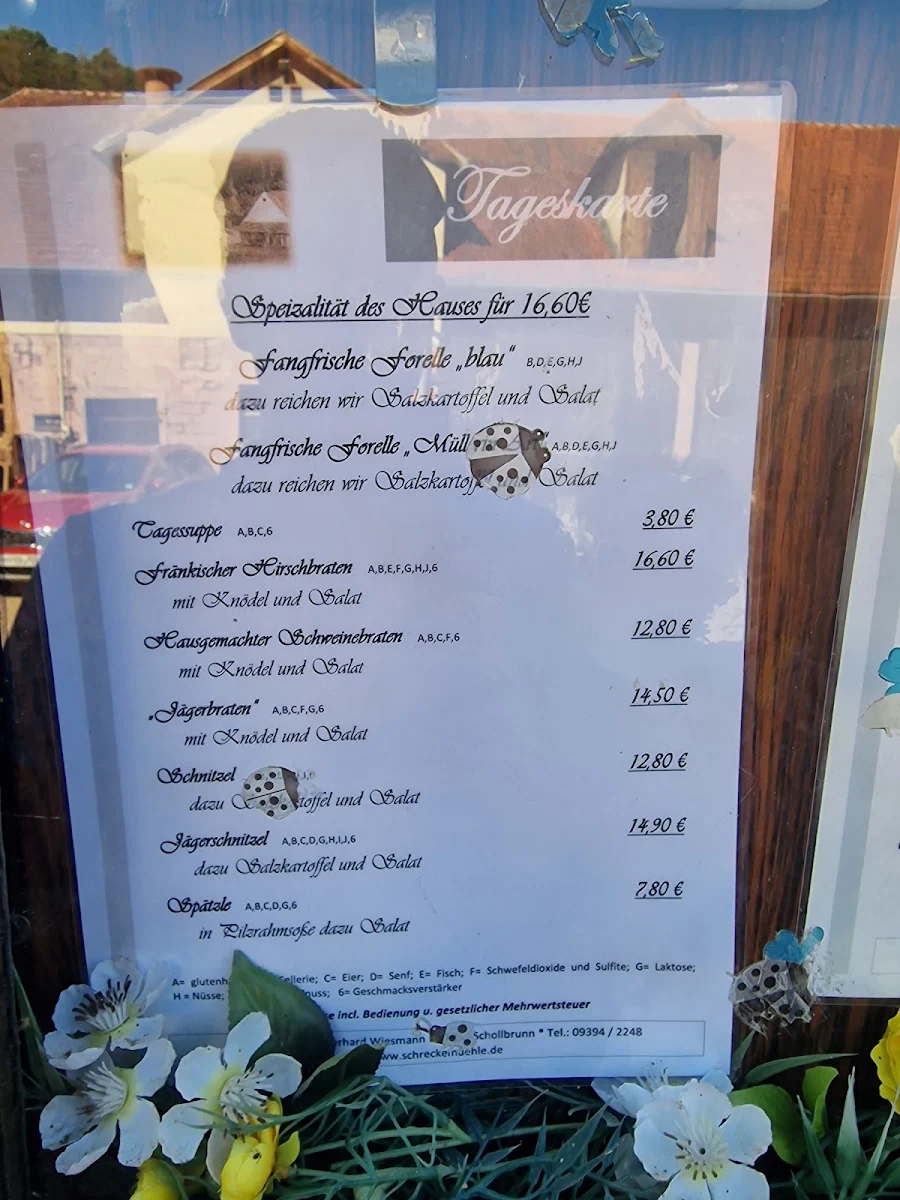 Tageskarte
Speizalität des Hauses für 16,60€
Fangfrische Forelle „blau“ B,D,E,G,H,J
dazu reichen wir Salzkartoffel und Salat
Fangfrische Forelle „Müll A,B,D,E,G,H,J
dazu reichen wir Salzkartof Salat
Tagessuppe A,B,C,6 3,80 €
Fränkischer Hirschbraten A,B,E,F,G,H,J,6 16,60 €
mit Knödel und Salat
Hausgemachter Schweinebraten A,B,C,F,6 12,80 €
mit Knödel und Salat
„Jägerbraten“ A,B,C,F,G,6 14,50 €
mit Knödel und Salat
Schnitzel 12,80 €
dazu toffel und Salat
Jägerschnitzel A,B,C,D,G,H,I,J,6 14,90 €
dazu Salzkartoffel und Salat
Spätzle A,B,C,D,G,6 7,80 €
in Pilzrahmsoße dazu Salat
A= glutenh ellerie; C= Eier; D= Senf; E= Fisch; F= Schwefeldioxide und Sulfite; G= Laktose;
H = Nüsse; nuss; 6= Geschmacksverstärker
se incl. Bedienung u. gesetzlicher Mehrwertsteuer
erhard Wiesmann Schollbrunn * Tel.: 09394 / 2248
www.schreckemuehle.de